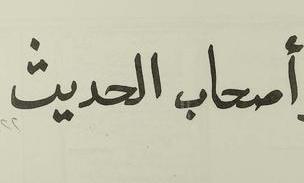 وأصحاب الحديث